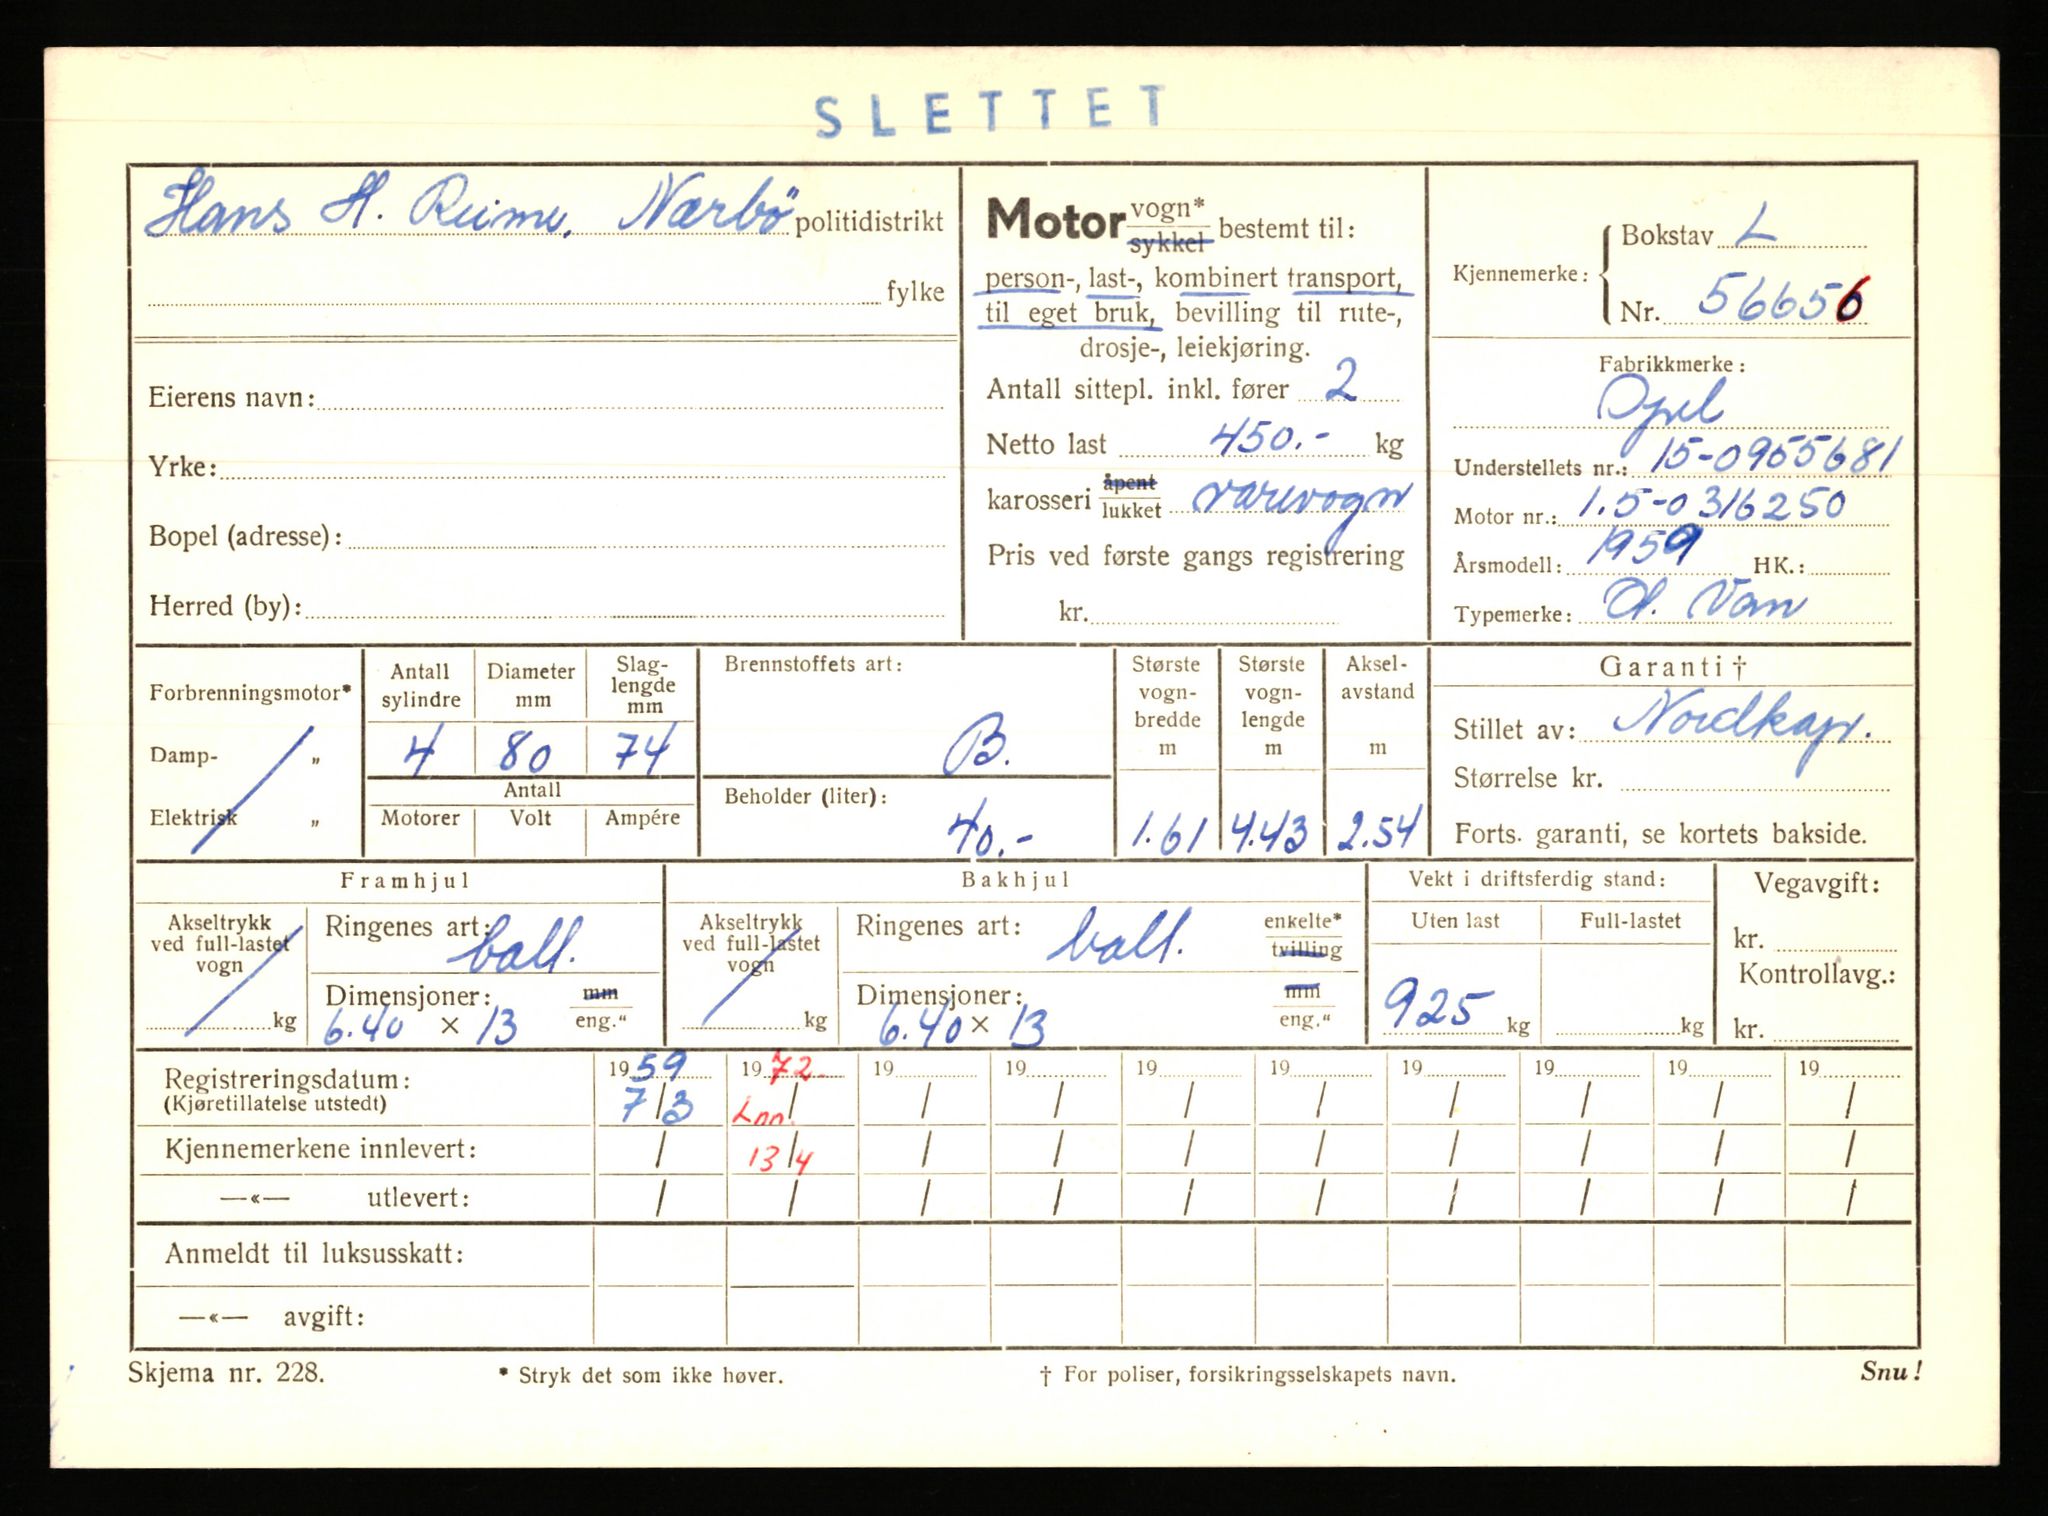 SLETTET
Hans H. Reime, Nærbö politidistrikt
fylke
Eierens navn:
Yrke:
Bopel (adresse):
Herred (by):
Motor vogn* sykkel bestemt til:
person-, last-, kombinert transport,
til eget bruk, bevilling til rute-,
drosje-, leiekjøring.
Antall sittepl. inkl. fører 2
Netto last 450.- kg
karosseri åpent lukket varevogn
Pris ved første gangs registrering
kr.
Kjennemerke: Bokstav L
Nr. 56656
Fabrikkmerke:
Opel
Understellets nr.: 15-0955681
Motor nr.: 1.5-0316250
Årsmodell: 1959 HK.:
Typemerke: Ol. Van
Forbrenningsmotor*
Damp- „
Elektrisk „
Antall sylindre Diameter mm Slag- lengde mm
4 80 74
Antall
Motorer Volt Ampére
Brennstoffets art:
B.
Beholder (liter):
40.-
Største vogn- bredde m
1.61
Største vogn- lengde m
4.43
Aksel- avstand m
2.54
Garanti †
Stillet av: Nordkap.
Størrelse kr.
Forts. garanti, se kortets bakside.
Framhjul
Akseltrykk ved full-lastet vogn
kg
Ringenes art: ball.
Dimensjoner: mm eng."
6.40 × 13
Bakhjul
Akseltrykk ved full-lastet vogn
kg
Ringenes art: ball. enkelte* tvilling
Dimensjoner: mm eng."
6.40 × 13
Vekt i driftsferdig stand:
Uten last Full-lastet
925 kg kg
Vegavgift:
kr.
Kontrollavg.:
kr.
Registreringsdatum: 1959 1972 19 19 19 19 19 19 19 19
(Kjøretillatelse utstedt) 7/3 / / / / / / / / /
Kjennemerkene innlevert: / 13/4 / / / / / / / /
—«— utlevert: / / / / / / / / / /
Anmeldt til luksusskatt:
—«— avgift:
Skjema nr. 228. * Stryk det som ikke høver. † For poliser, forsikringsselskapets navn. Snu!